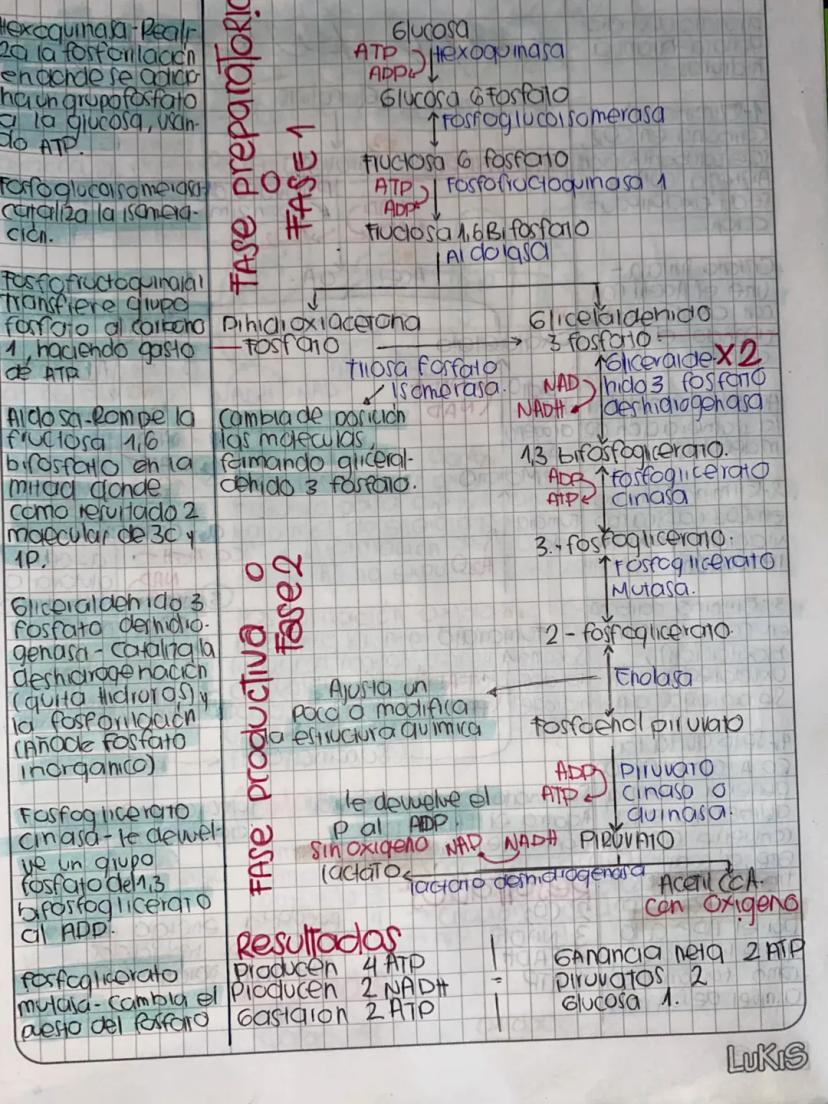 Hexoquinasa-Reali-
za la fosforilación
en donde se adicio-
na un grupo fosfato
a la glucosa, usan-
do ATP.
Fosfoglucoisomerasa
cataliza la isomera-
ción.
Fosfofructoquinasa1
transfiere grupo
fosfato al carbono
1, haciendo gasto
de ATP.
Aldosa-Rompe la
fructosa 1,6
bifosfato en la
mitad donde
como resultado 2
moleculas de 3C y
1P.
Gliceraldehido 3
fosfato deshidro-
genasa-cataliza la
deshidrogenación
(quita hidruros) y
la fosforilación
(Añade fosfato
inorganico)
Fosfoglicerato
cinasa-le devuel-
ve un grupo
fosfato del 1,3
bifosfoglicerato
al ADP.
fosfoglicerato
mutasa-cambia el
puesto del fosforo
FASE preparatoria
O
FASE 1
Glucosa
ATP
Hexoquinasa
ADP
Glucosa 6 fosfato
Fosfoglucoisomerasa
Fructosa 6 fosfato
ATP
Fosfofructoquinasa 1
ADP
Fructosa 1,6 Bifosfato
Aldolasa
Dihidroxiacetona
fosfato
Glicelaldehido
3 fosfato
triosa fosfato
Isomerasa.
cambia de posición
las moleculas,
formando gliceral-
dehido 3 fosforo.
Gliceralde X2
NAD
hido 3 fosfato
NADH
deshidrogenasa
1,3 bifosfoglicerato.
ADP
fosfoglicerato
ATP
cinasa
3-fosfoglicerato.
fosfoglicerato
Mutasa.
2-fosfoglicerato.
Enolasa
Ajusta un
poco o modifica
la estructura quimica
Fosfoenol piruvato
FASE productiva o
Fase 2
ADP
Piruvato
ATP
cinasa o
quinasa.
le devuelve el
P al ADP.
sin oxigeno NAD NADH PIRUVATO
lactato
lactato deshidrogenasa
Acetil CoA.
con oxigeno
Resultados
Producen 4 ATP
Producen 2 NADH
Gastaron 2 ATP
=
GANANCIA neta 2 ATP
Piruvatos 2
Glucosa 1.
LUKIS